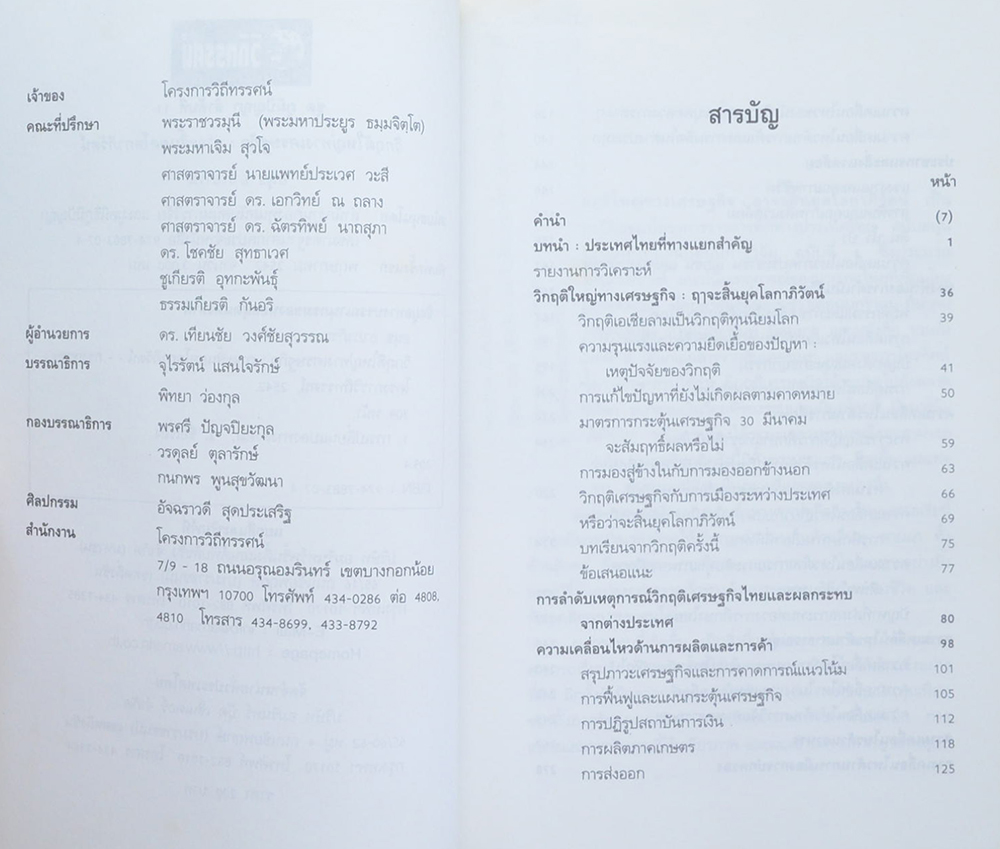 เจ้าของ โครงการวิถีทรรศน์
คณะที่ปรึกษา พระราชวรมุนี (พระมหาประยูร ธมฺมจิตฺโต)
พระมหาเจิม สุวโจ
ศาสตราจารย์ นายแพทย์ประเวศ วะสี
ศาสตราจารย์ ดร.เอกวิทย์ ณ ถลาง
ศาสตราจารย์ ดร.ฉัตรทิพย์ นาถสุภา
ดร.โชคชัย สุทธาเวศ
ชูเกียรติ อุทกะพันธุ์
ธรรมเกียรติ กันอริ
ผู้อำนวยการ ดร.เทียนชัย วงศ์ชัยสุวรรณ
บรรณาธิการ จุไรรัตน์ แสนใจรักษ์
พิทยา ว่องกุล
กองบรรณาธิการ พรศรี ปัญจปิยะกุล
วรดุลย์ ตุลารักษ์
กนกพร พูนสุขวัฒนา
ศิลปกรรม อัจฉราวดี สุดประเสริฐ
สำนักงาน โครงการวิถีทรรศน์
7/9 - 18 ถนนอรุณอมรินทร์ เขตบางกอกน้อย
กรุงเทพฯ 10700 โทรศัพท์ 434-0286 ต่อ 4808,
4810 โทรสาร 434-8699, 433-8792
สารบัญ
หน้า
คำนำ (7)
บทนำ : ประเทศไทยที่ทางแยกสำคัญ 1
รายงานการวิเคราะห์
วิกฤติใหญ่ทางเศรษฐกิจ : ฤาจะสิ้นยุคโลกาภิวัตน์ 36
วิกฤติเอเชียลามเป็นวิกฤติทุนนิยมโลก 39
ความรุนแรงและความยืดเยื้อของปัญหา :
เหตุปัจจัยของวิกฤติ 41
การแก้ไขปัญหาที่ยังไม่เกิดผลตามคาดหมาย 50
มาตรการกระตุ้นเศรษฐกิจ 30 มีนาคม
จะสัมฤทธิ์ผลหรือไม่ 59
การมองสู่ข้างในกับการมองออกข้างนอก 63
วิกฤติเศรษฐกิจกับการเมืองระหว่างประเทศ 66
หรือว่าจะสิ้นยุคโลกาภิวัตน์ 69
บทเรียนจากวิกฤติครั้งนี้ 75
ข้อเสนอแนะ 77
การลำดับเหตุการณ์วิกฤติเศรษฐกิจไทยและผลกระทบ
จากต่างประเทศ 80
ความเคลื่อนไหวด้านการผลิตและการค้า 98
สรุปภาวะเศรษฐกิจและการคาดการณ์แนวโน้ม 101
การฟื้นฟูและแผนกระตุ้นเศรษฐกิจ 105
การปฏิรูปสถาบันการเงิน 112
การผลิตภาคเกษตร 118
การส่งออก 125